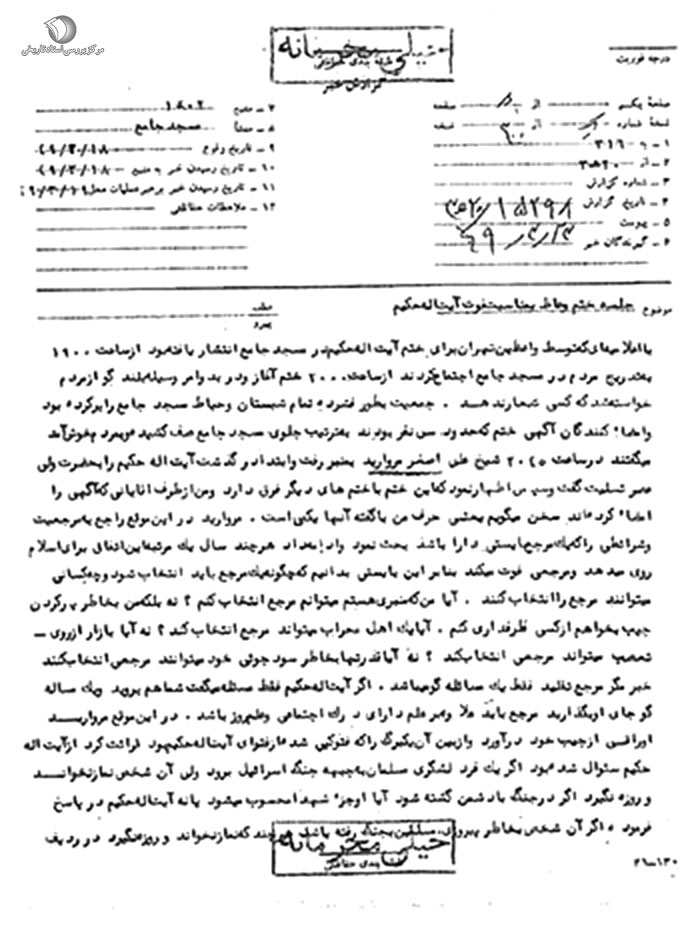 مرکز بررسی اسناد تاریخی
خیلی محرمانه
طبقه بندی حفاظتی
گزارش خبر
درجه فوریت
صفحه یکم از صفحه
نسخه شماره از نسخه
۱ – به ۳۱۶
۲ – از
۳ – شماره گزارش
۴ – تاریخ گزارش
۵ – پیوست
۶ – گیرندگان خبر
۷ – منبع ۱۸۰۲
۸ – منشأ مسجد جامع
۹ – تاریخ وقوع ۴۹/۳/۱۸
۱۰ – تاریخ رسیدن خبر به منبع ۴۹/۳/۱۸
۱۱ – تاریخ رسیدن خبر به رهبر عملیات محل ۴۹/۳/۱۹
۱۲ – ملاحظات حفاظتی
موضوع جلسه ختم وعاظ بمناسبت فوت آیت اله حکیم
عطف
پیرو
با اعلامیه ای که توسط واعظین تهران برای ختم آیت اله حکیم در مسجد جامع انتشار یافته بود از ساعت ۱۹۰۰
بتدریج مردم در مسجد جامع اجتماع کردند از ساعت ۲۰۰۰ ختم آغاز و در بدو امر وسیله بلند گو از مردم
خواسته شد که کسی شعار ندهد . جمعیت بطور فشرده تمام شبستان و حیاط مسجد جامع را پر کرده بود
و امضاء کنندگان آگهی ختم که حدود سی نفر بودند به ترتیب جلوی مسجد جامع صف کشیده و بمردم خوش آمد
میگفتند در ساعت ۲۰۴۵ شیخ علی اصغر مروارید بمنبر رفت و ابتدا در گذشت آیت اله حکیم را بحضرت ولی
عصر تسلیت گفت و سپس اظهار نمود که این ختم با ختم های دیگر فرق دارد و من از طرف آقایانی که آگهی را
امضاء کرده اند سخن میگویم یعنی حرف من با گفته آنها یکی است . مروارید در این موقع راجع به مرجعیت
و شرائطی را که یک مرجع بایستی دارا باشد بحث نمود و ادامه داد هر چند سال یک مرتبه این اتفاق برای اسلام
روی میدهد و مرجعی فوت میکند بنابر این بایستی بدانیم که چگونه یک مرجع باید انتخاب شود و چه کسانی
میتوانند مرجع را انتخاب کنند . آیا من که منبری هستم میتوانم مرجع انتخاب کنم ؟ نه بلکه من بخاطر پر کردن
جیب بخواهم از کسی طرفداری کنم . آیا یک اهل محراب میتواند مرجع انتخاب کند ؟ نه آیا بازار از روی –
تعصب میتواند مرجعی انتخاب بکند ؟ نه آیا قدرتها بخاطر سود جوئی خود میتوانند مرجعی انتخاب بکنند
خیر مگر مرجع تقلید فقط یک مسائله گو میباشد . اگر آیت اله حکیم فقط مسئله میگفت شما هم بروید و یک مساله
گو جای او بگذارید مرجع باید علاوه بر علم دارای درک اجتماعی و علم روز باشد . در این موقع مروارید
اوراقی از جیب خود در آورد و از بین آن یک برگ را که فتوکپی شده از فتوای آیت اله حکیم بود قرائت کرد از آیت اله
حکیم سئوال شده بود اگر یک فرد لشگری مسلمان به جبهه جنگ اسرائیل برود ولی آن شخص نماز نخوانـد
و روزه نگیرد اگر در جنگ با دشمن کشته شود آیا او جزء شهدا محسوب میشود یا نه آیت اله حکیم در پاسخ
فرموده اگر آن شخص بخاطر پیروزی مسلمین بجنگ رفته باشد هر چند که نماز نخواند و روزه نگیرد در ردیف
خیلی محرمانه
طبقه بندی حفاظتی
۲۱–۱۳۰